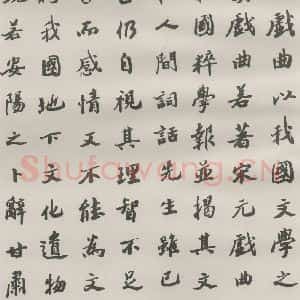 戲曲以我國文學之
戲曲若著宋元戲曲
國粹學報並揭其文
人間詞話先生雖已
仍自視其理智不足
而感情又不能為文
我國地下文化遺物
若安陽之卜辭甘肅
Shufawang.CN